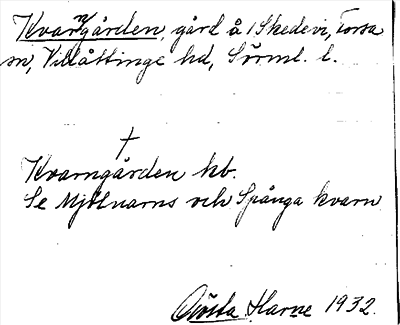 Kvarngården, gård å 1 Skedevi, Torsa
sn, Villåttinge hd, Sörml. l.
†
Kvarngården kb.
Se Mjölnarns och Spånga kvarn
Gösta Harne 1932.